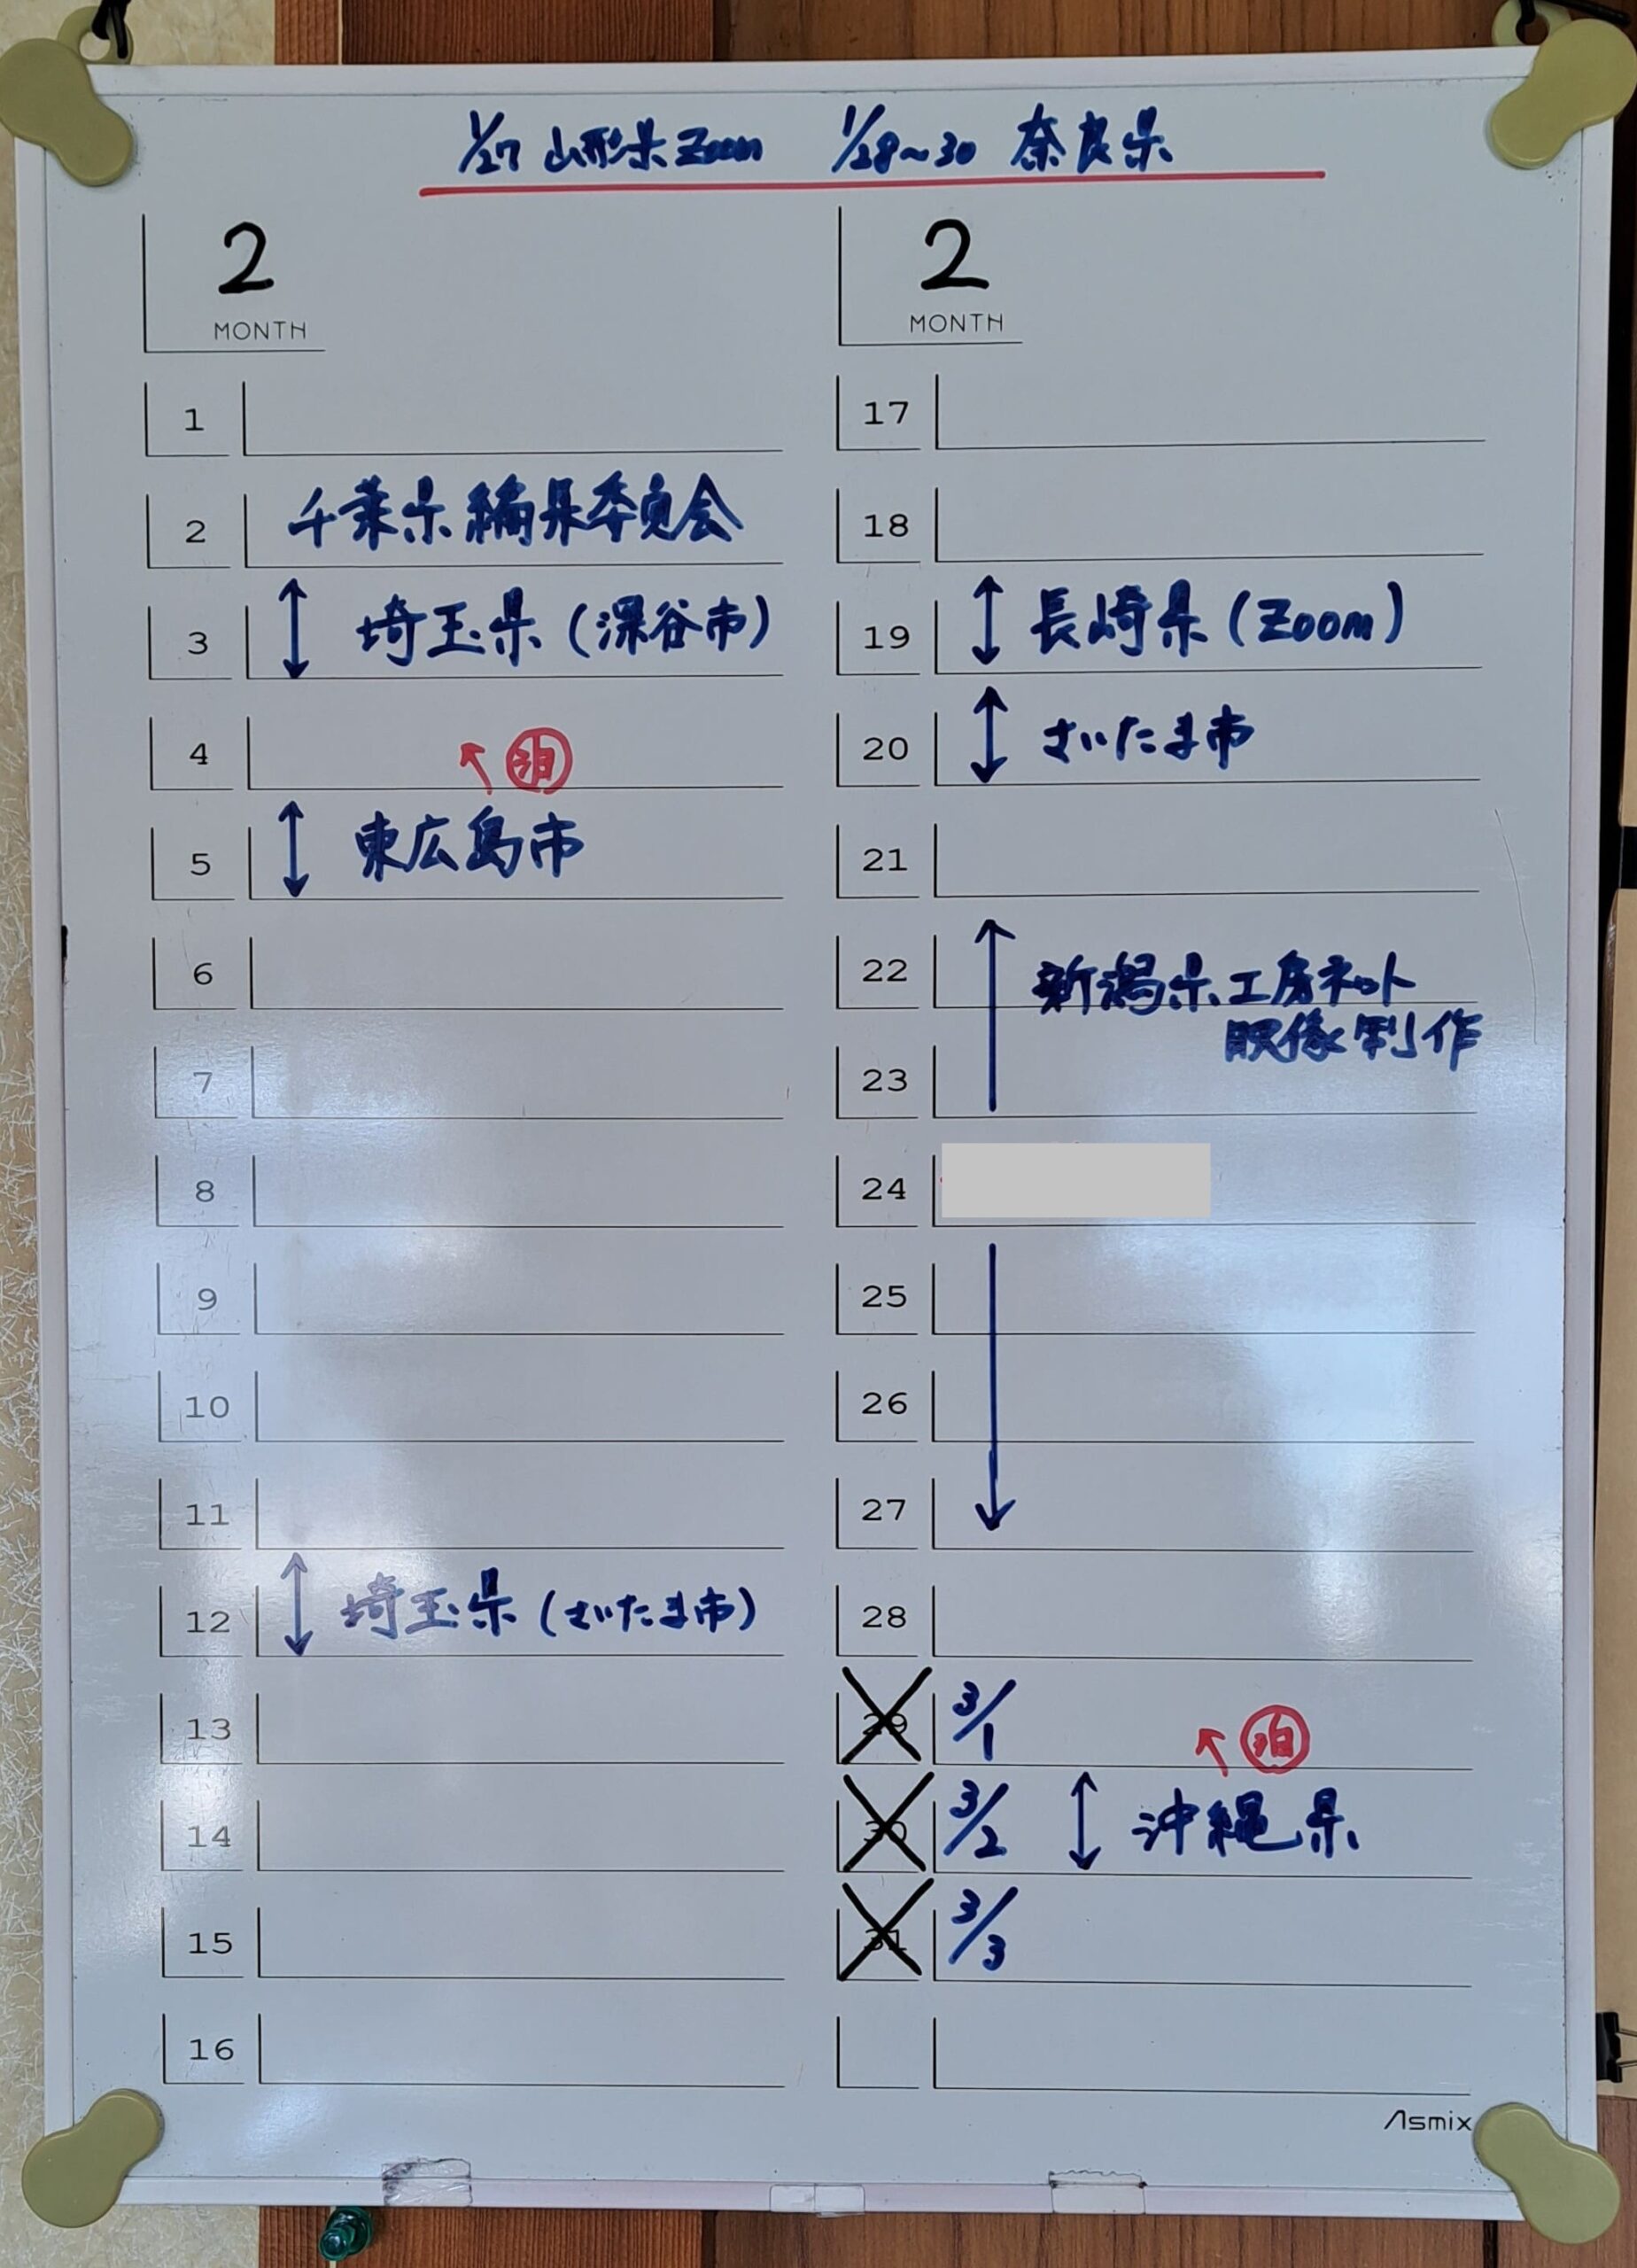 1/27 山形県Zoom 1/28~30 奈良県
2
MONTH
1
2 千葉県編集委員会
3 埼玉県(深谷市)
4 ↖ 泊
5 東広島市
6
7
8
9
10
11
12 埼玉県(さいたま市)
13
14
15
16
2
MONTH
17
18
19 長崎県(Zoom)
20 さいたま市
21
22 新潟県工房ネット
映像制作
23
24
25
26
27
28
29 3/1 ↖ 泊
30 3/2 沖縄県
31 3/3
Asmix